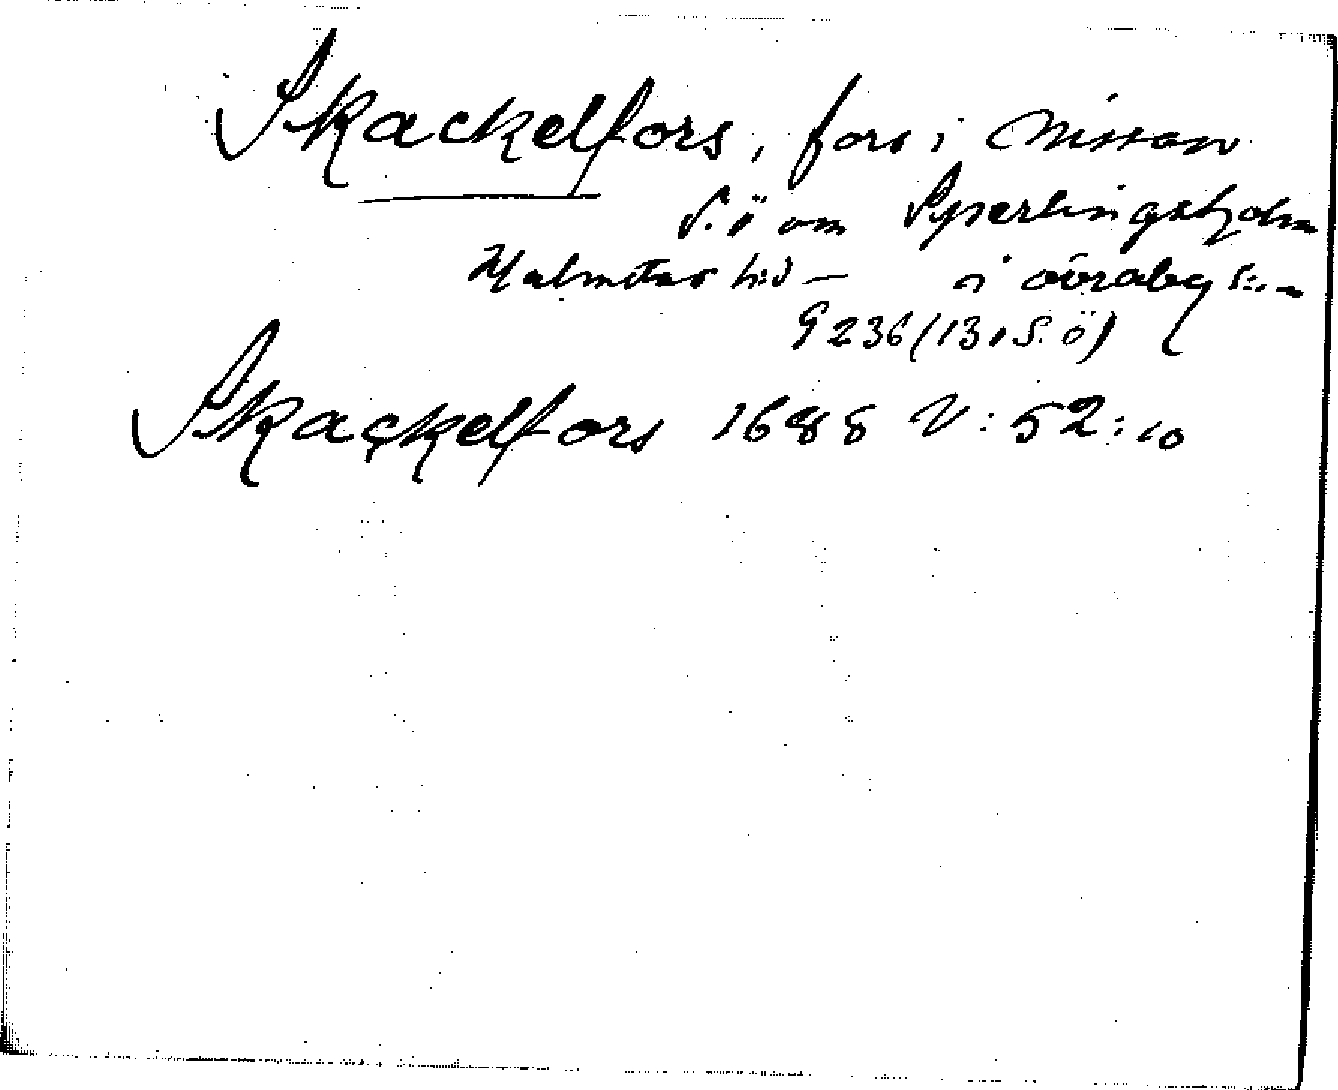 Skackelfors, fors i Nissan
S.ö om Sperlingsholm
Halmstads hd – i Övraby s:n
9236 (13, S. ö)
Skackelfors 1688 V: 52: 10